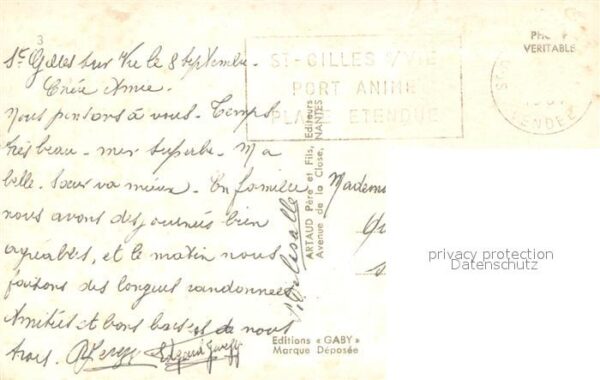 3
St Gilles sur Vie le 8 Septembre.
Chère Amie
Nous pensons à vous. Temps
très beau - mer superbe - Ma
belle-Sœur va mieux. En famille
nous avons des journées bien
agréables, et le matin nous
faisons des longues randonnées
Amitiés et bons baisers de nous
trois.
ST-GILLES S/VIE
PORT ANIMÉ
PLAGE ETENDUE
VERITABLE
VENDEE
ARTAUD Père et Fils, Editeurs
Avenue de la Close, NANTES
Editions « GABY »
Marque Déposée
privacy protection
Datenschutz